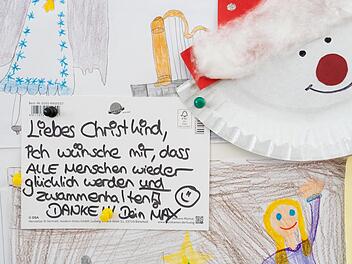 Liebes Christkind,
Ich wünsche mir, dass
ALLE Menschen wieder
glücklich werden und
zusammenhalten!
DANKE!!! Dein MAX